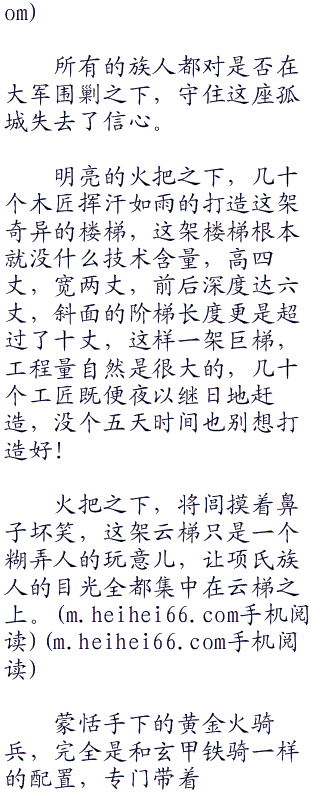 om)
所有的族人都对是否在
大军围剿之下，守住这座孤
城失去了信心。
明亮的火把之下，几十
个木匠挥汗如雨的打造这架
奇异的楼梯，这架楼梯根本
就没什么技术含量，高四
丈，宽两丈，前后深度达六
丈，斜面的阶梯长度更是超
过了十丈，这样一架巨梯，
工程量自然是很大的，几十
个工匠既便夜以继日地赶
造，没个五天时间也别想打
造好！
火把之下，将闾摸着鼻
子坏笑，这架云梯只是一个
糊弄人的玩意儿，让项氏族
人的目光全都集中在云梯之
上。(m.heihei66.com手机阅
读)(m.heihei66.com手机阅
读)
蒙恬手下的黄金火骑
兵，完全是和玄甲铁骑一样
的配置，专门带着